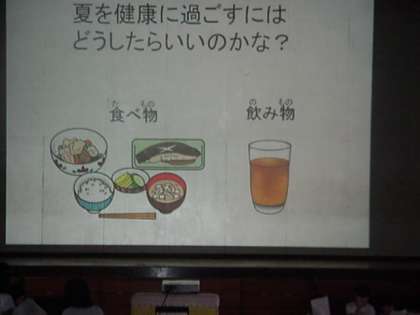 夏を健康に過ごすには
どうしたらいいのかな？
た もの
食べ物
の もの
飲み物